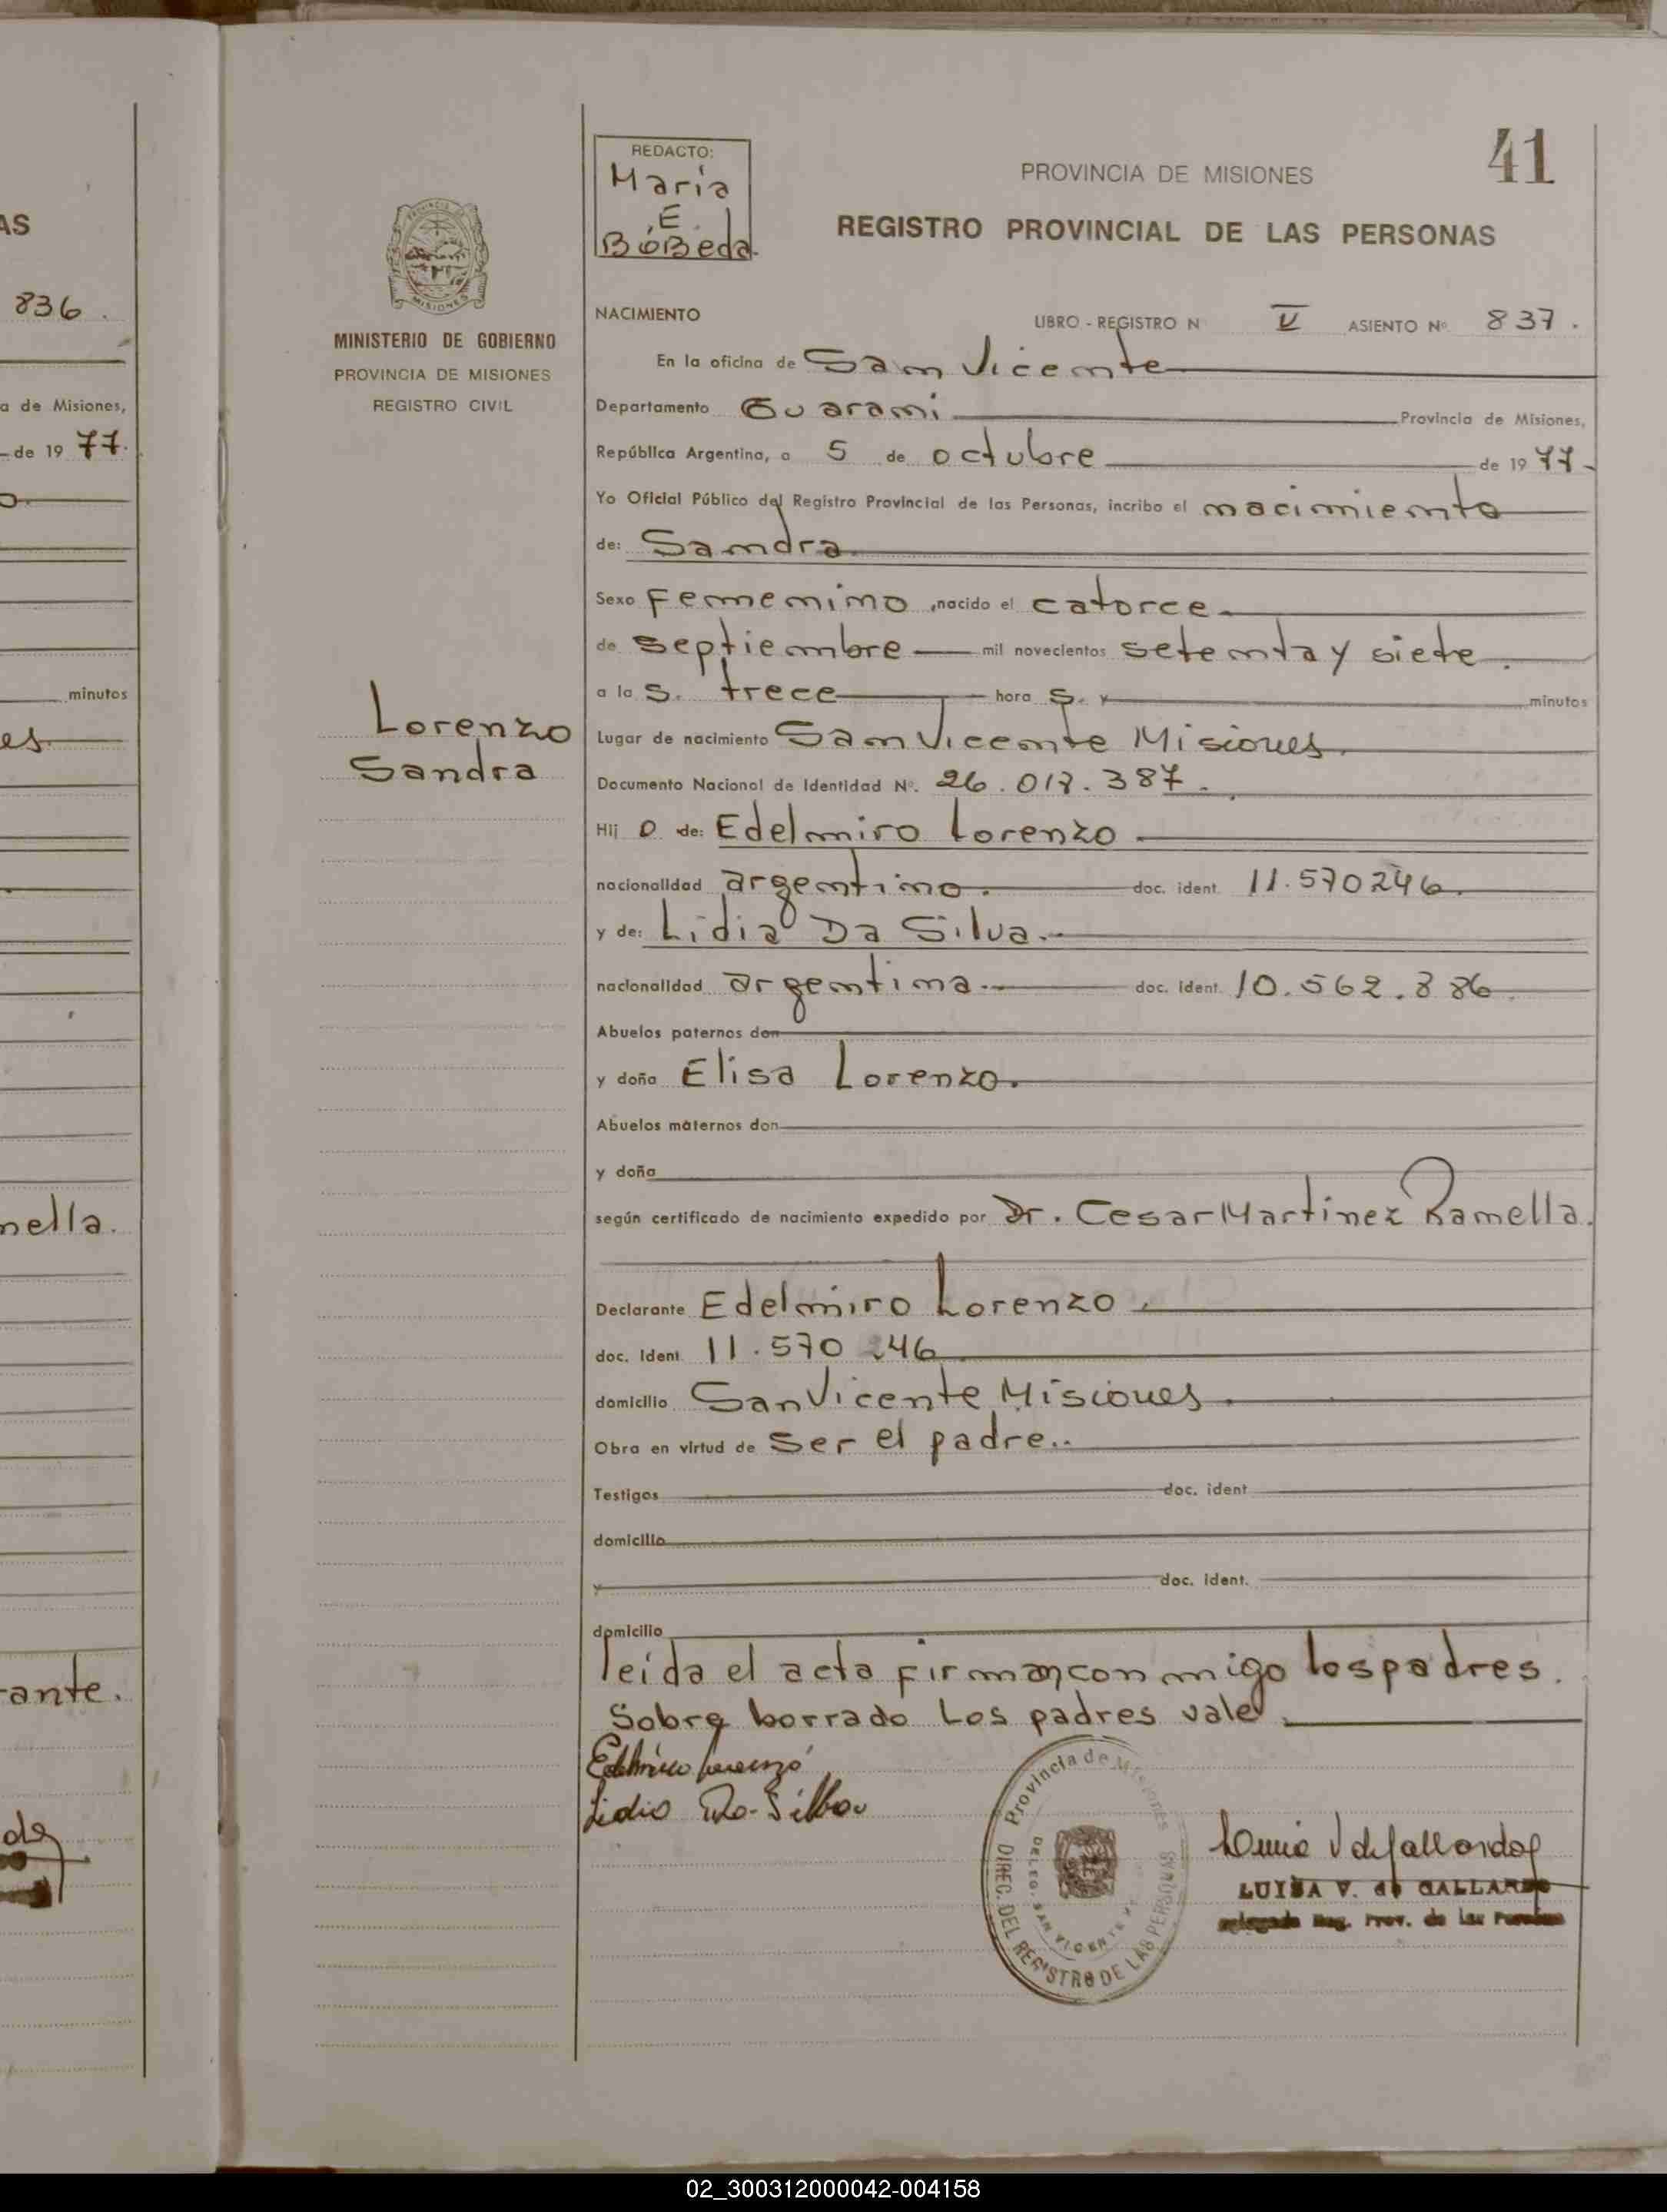 AS
836.
a de Misiones,
de 19 77.
minutos
es
nella.
rante.
REDACTO:
Maria
E.
BóBeda.
41
PROVINCIA DE MISIONES
REGISTRO PROVINCIAL DE LAS PERSONAS
MISIONES
MINISTERIO DE GOBIERNO
PROVINCIA DE MISIONES
REGISTRO CIVIL
Lorenzo
Sandra
NACIMIENTO
LIBRO - REGISTRO N V ASIENTO Nº 837.
En la oficina de San Vicente
Departamento Guarani Provincia de Misiones,
República Argentina, a 5 de octubre de 19 77-
Yo Oficial Público del Registro Provincial de las Personas, incribo el nacimiento
de: Sandra
Sexo Femenino, nacido el catorce
de septiembre mil novecientos setenta y siete.
a la s. trece hora s. y minutos
Lugar de nacimiento San Vicente Misiones.
Documento Nacional de Identidad Nº. 26.017.387.
Hij a de: Edelmiro Lorenzo
nacionalidad argentino. doc. ident. 11.570246.
y de: Lidia Da Silva.
nacionalidad argentina. doc. ident. 10.562.886.
Abuelos paternos don
y doña Elisa Lorenzo.
Abuelos maternos don
y doña
según certificado de nacimiento expedido por Dr. Cesar Martinez Ramella.
Declarante Edelmiro Lorenzo.
doc. Ident. 11.570 246
domicilio San Vicente Misiones.
Obra en virtud de ser el padre..
Testigos doc. ident
domicilio
y doc. ident.
domicilio
leida el acta firman conmigo los padres.
Sobre borrado Los padres vale.
Edelmiro Lorenzo
Lidia Da-Silva
Provincia de Misiones
DIREC. DEL REGISTRO DE LAS PERSONAS
DELEG. SAN VICENTE
LUISA V. de GALLARDO
Delegada Reg. Prov. de las Personas
02_300312000042-004158